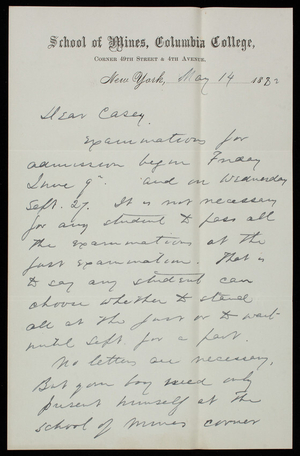 School of Mines, Columbia College,
Corner 49th Street & 4th Avenue.
New York, May 14 1882
Dear Casey.
Examinations for
admission began Friday
June 9th and on Wednesday
Sept. 27. It is not necessary
for any student to pass all
the examinations at the
first examination. That is
to say any student can
choose whether to stand
all at the first or to wait
until Sept for a part.
No letters are necessary,
But your boy need only
present himself at the
School of Mines corner